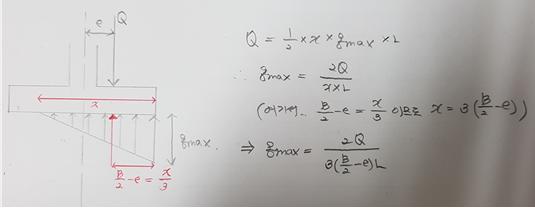 e
Q
x
qmax.
B/2 - e = x/3
Q = 1/2 × x × qmax × L
∴ qmax = 2Q / x×L
(여기서.. B/2 - e = x/3 이므로 x = 3(B/2 - e))
⇒ qmax = 2Q / 3(B/2 - e)L